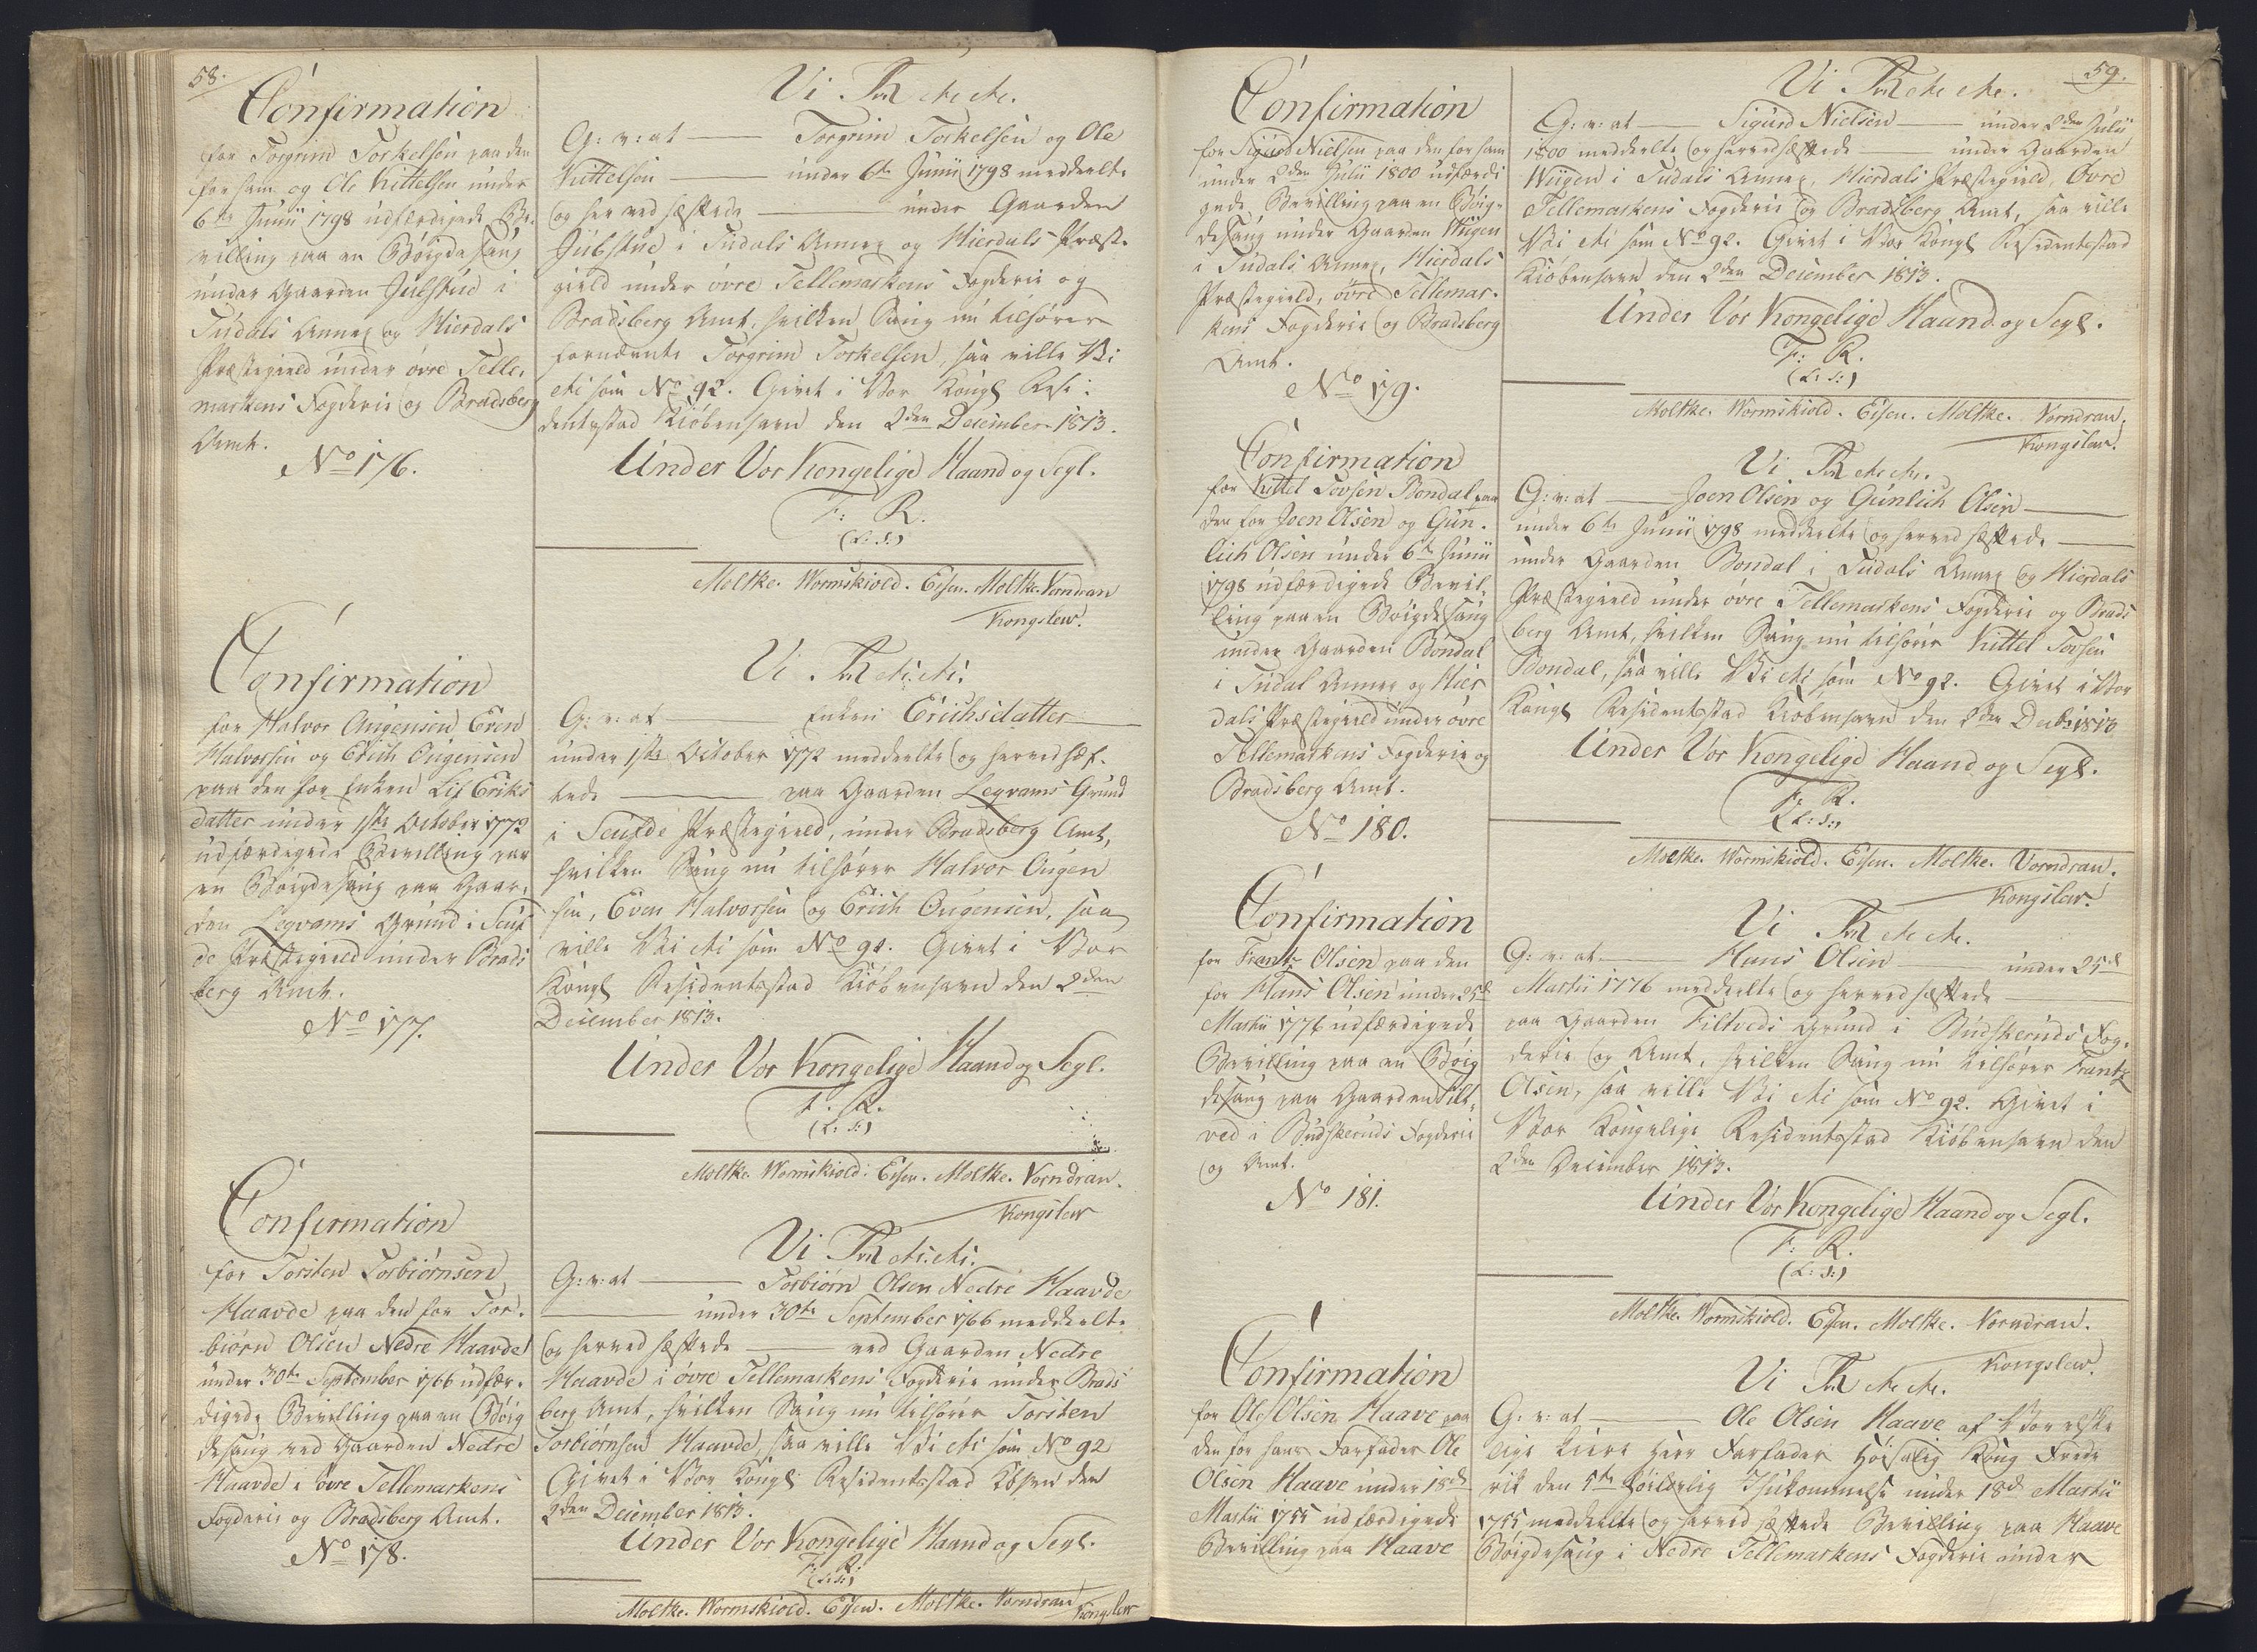 58.
Confirmation
for Torgrim Torkelsen paa den
for ham og Ole Kittelsen under
6te Junii 1798 udfærdigede Be-
villing paa en Bøigdesaug
under Gaarden Juvstue i
Tudals Annex og Hierdals
Præstegield under øvre Telle-
markens Fogderie og Bradsberg
Amt.
No 176.
Vi Fr. R etc etc.
G: v: at — Torgrim Torkelsen og Ole
Kittelsen — under 6te Junii 1798 meddeelte
og herved hæftede — under Gaarden
i Tudals Annex og Hierdals Præste-
gield under øvre Tellemarkens Fogderie og
Bradsberg Amt, hvilken Saug nu tilhører
fornævnte Torgrim Torkelsen, saa ville Vi
etc som No 92. Givet i Vor Kongl Resi-
dentzstad Kiøbenhavn den 2den December 1813.
Under Vor Kongelige Haand og Segl.
F: R.
(L: S:)
Moltke. Wormskiold. Eisen. Moltke. Vorndran
Kongslew.
Confirmation
for Halvor Augensen, Even
Halvorsen og Erich Augensen
paa den for Enken Lif Eriks
datter under 1ste October 1772
udfærdigede Bevilling paa
en Bøigdesaug paa Gaar-
den Legvams Grund i Seuf
de Præstegield under Brads
berg Amt.
No 177.
Vi Fr. R etc. etc.
G: v: at — Enken Erichsdatter —
under 1ste October 1772 meddeelte og herved hæf-
tede — paa Gaarden Legvams Grund
i Seufde Præstegield, under Bradsberg Amt,
hvilken Saug nu tilhører Halvor Augen
sen, Even Halvorsen og Erich Augensen, saa
ville Vi etc som No 92. Givet i Vor
Kongl Residentzstad Kiøbenhavn den 2den
December 1813.
Under Vor Kongelige Haand og Segl.
F. R.
(L: S:)
Moltke. Wormskiold. Eisen. Moltke. Vorndran.
Kongslew
Confirmation
for Torsten Torbiørnsen
Haavde paa den for Tor-
biørn Olsen Nedre Haavde
under 30te September 1766 udfær-
digede Bevilling paa en Bøig
desaug ved Gaarden Nedre
Haavde i øvre Tellemarkens
Fogderie og Bradsberg Amt.
No 178.
Vi Fr. R etc. etc.
G: v: at — Torbiørn Olsen Nedre Haavde
— under 30te September 1766 meddeelte
og herved hæftede — ved Gaarden Nedre
Haavde i øvre Tellemarkens Fogderie under Brads
berg Amt, hvilken Saug nu tilhører Torsten
Torbiørnsen Haavde, saa ville Vi etc som No 92
Givet i Vor Kongl: Residentzstad Kbhvn den
2den December 1813.
Under Vor Kongelige Haand og Segl.
F: R.
(L: S:)
Moltke. Wormskiold. Eisen. Moltke. Vorndran Kongslew
59.
Confirmation
for Sigurd Nielsen paa den for ham
under 2den Julii 1800 udfærdi
gede Bevilling paa en Bøig-
desaug under Gaarden Wiigen
i Tudals Annex, Hierdals
Præstegield, øvre Tellemar-
kens Fogderie og Bradsberg
Amt.
No 179.
Vi Fr. R etc etc.
G: v: at — Sigurd Nielsen — under 2den Julii
1800 meddeelte og herved hæftede — under Gaarden
Wiigen i Tudals Annex, Hierdals Præstegield, Øvre
Tellemarkens Fogderie og Bradsberg Amt, saa ville
Vi etc som No 92. Givet i Vor Kongl Residentzstad
Kiøbenhavn den 2den December 1813.
Under Vor Kongelige Haand og Segl.
F: R.
(L: S:)
Moltke. Wormskiold. Eisen. Moltke. Vorndran.
Kongslew.
Confirmation
for Kittel Tovsen Bondal paa
den for Joen Olsen og Gun-
lich Olsen under 6te Junii
1798 udfærdigede Bevil-
ling paa en Bøigdesaug
under Gaarden Bondal
i Tudal Annex og Hier
dals Præstegield under øvre
Tellemarkens Fogderie og
Bradsberg Amt.
No 180.
Vi Fr. R etc etc.
G: v: at — Joen Olsen og Gunlich Olsen —
under 6te Junii 1798 meddeelte og herved hæftede —
under Gaarden Bondal i Tudals Annex og Hierdals
Præstegield under øvre Tellemarkens Fogderie og Brads
berg Amt, hvilken Saug nu tilhører Kittel Tovsen
Bondal, saa ville Vi etc som No 92. Givet i Vor
Kongl Residentzstad Kiøbenhavn den 2den Decbr 1813
Under Vor Kongelige Haand og Segl.
F: R.
(L: S:)
Moltke. Wormskiold. Eisen. Moltke. Vorndran.
Kongslew.
Confirmation
for Frantz Olsen paa den
for Hans Olsen under 25de
Martii 1776 udfærdigede
Bevilling paa en Bøig
desaug paa Gaarden Filt-
ved i Budskeruds Fogderie
og Amt.
No 181.
Vi Fr. R etc etc.
G: v: at — Hans Olsen — under 25de
Martii 1776 meddeelte og herved hæftede —
paa Gaarden Filtveds Grund i Budskeruds Fog-
derie og Amt, hvilken Saug nu tilhører Frantz
Olsen, saa ville Vi etc som No 92. Givet i
Vor Kongelige Residentzstad Kiøbenhavn den
2den December 1813.
Under Vor Kongelige Haand og Segl.
F: R.
(L: S:)
Moltke. Wormskiold. Eisen. Moltke. Vorndran.
Kongslew.
Confirmation
for Ole Olsen Haave paa
den for hans Farfader Ole
Olsen Haave under 18de
Martii 1755 udfærdigede
Bevilling paa Haave
Vi Fr. R etc etc.
G: v: at — Ole Olsen Haave af Vor elske
lige kiære Herr Farfader Høisalig Kong Frede
rik den 5te høilovlig Ihukommelse under 18de Martii
1755 meddeelte og herved hæftede Bevilling paa Haave
Bøigdesaug i Nedre Tellemarkens Fogderie under